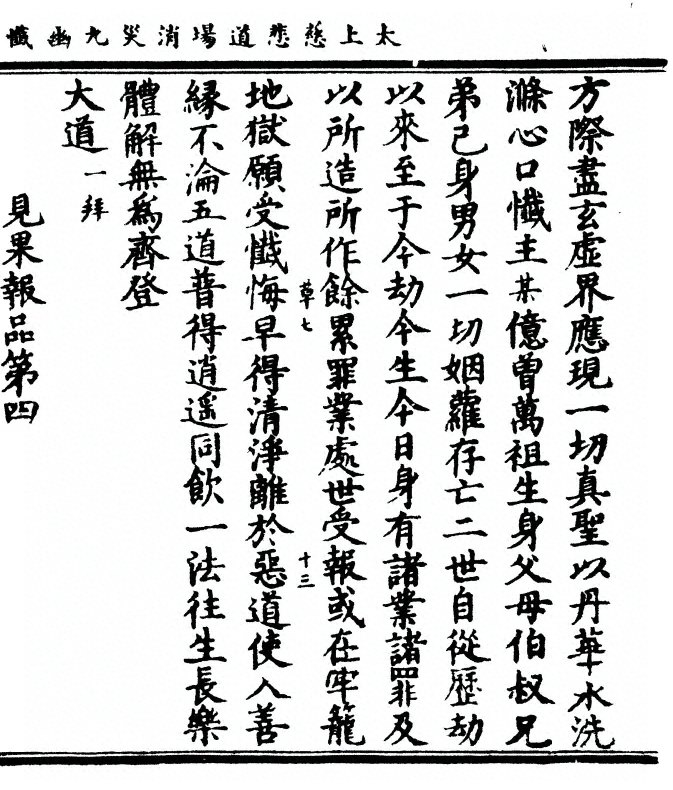 太上慈悲道場消災九幽懺
方際盡玄虛界應現一切真聖以丹華水洗
滌心口懺主某億曾萬祖生身父母伯叔兄
弟己身男女一切姻蘿存亡二世自從歷劫
以來至于今劫今生今日身有諸業諸罪及
以所造所作餘累罪業處世受報或在牢籠
草七
十三
地獄願受懺悔早得清淨離於惡道使入善
緣不淪五道普得逍遥同飲一法往生長樂
體解無爲齊登
大道一拜
見果報品第四